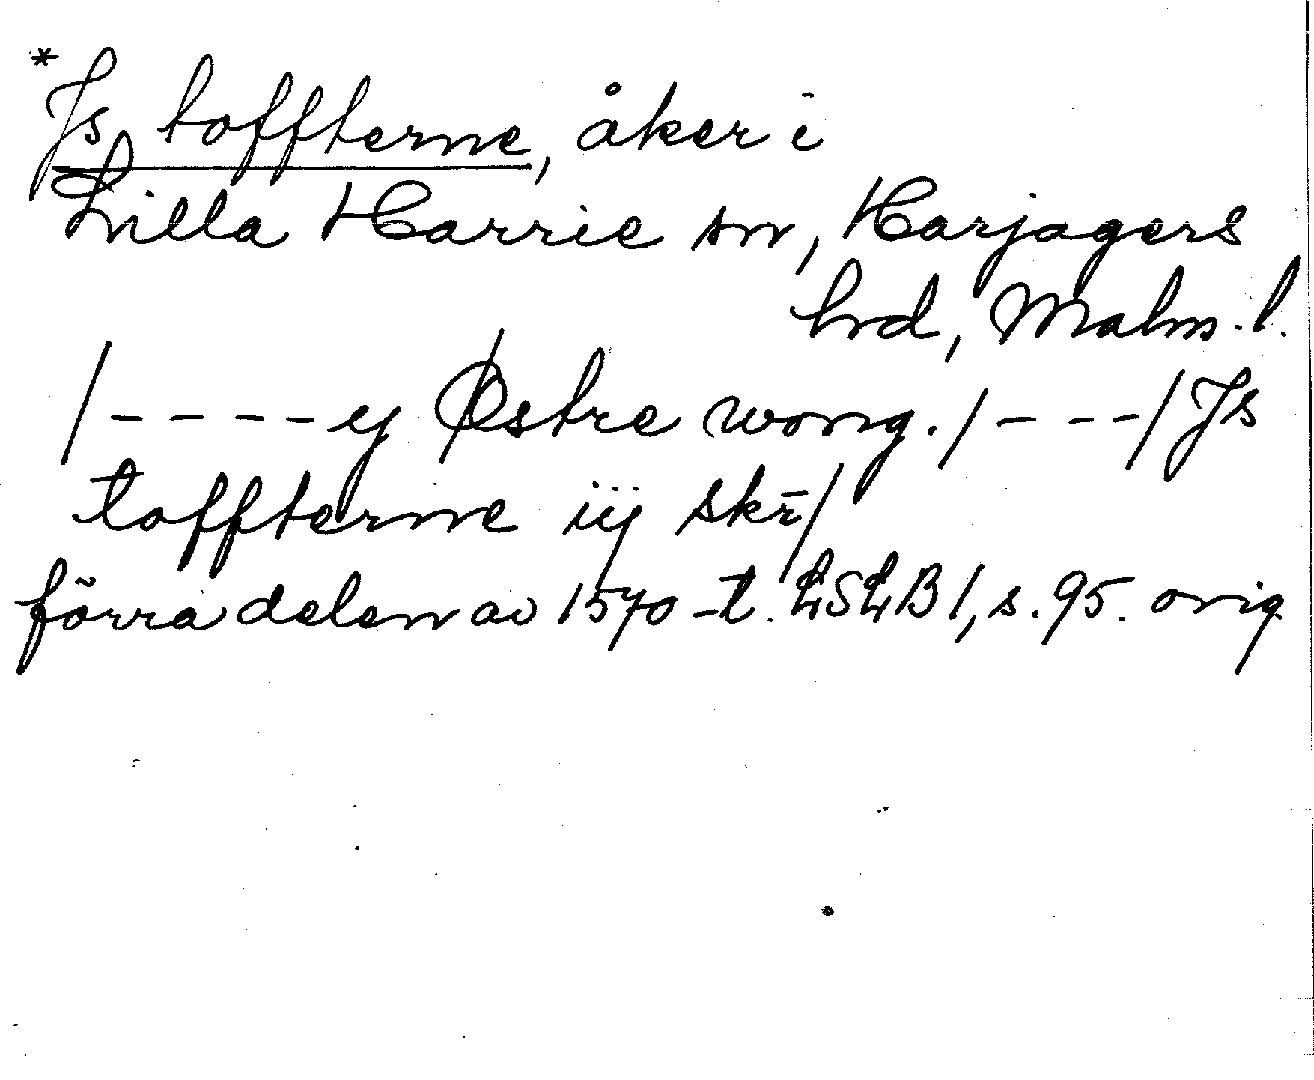 *Js toffterne, åker i
Lilla Harrie sn, Harjagers
hrd, Malm. l.
/----y Østre wong./---/Js
toffterne iij skr̄/
förra delen av 1570-t. LSLB I, s. 95. orig